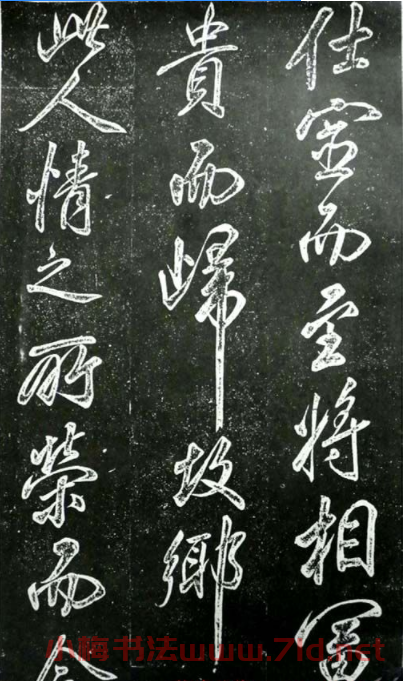 仕宦而至將相富
貴而歸故鄉
此人情之所榮而今
小梅书法www.7ld.net